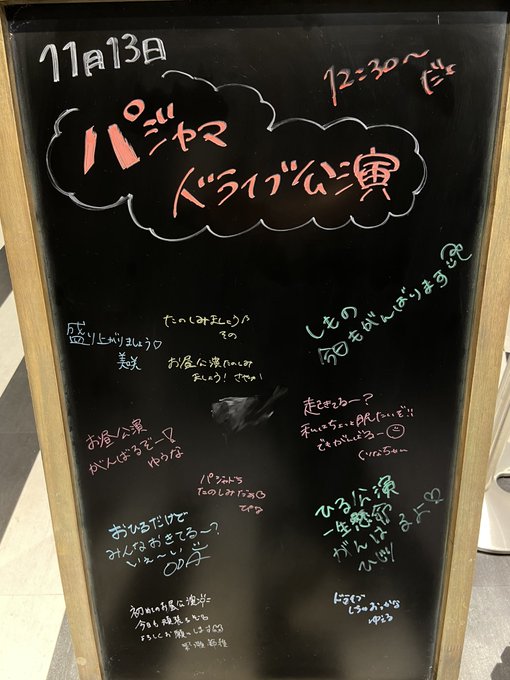 11月13日
12:30〜
だよ
パジャマ
ドライブ公演
しもの
今日もがんばります
たのしみましょう♪
その
盛り上がりましょう♡
美咲
お昼公演たのしみ
ましょう! さやか
起きてるー?
私はちょっと眠たいぞ!!
でもがんばるー
くりなちゃん
お昼公演
がんばるぞー!
ゆうな
パジャドラ
たのしみだなぁ
ぴな
ひる公演
一生懸命
がんばるよ♡
おひるだけど
みんなおきてるー?
いぇーい
初日のお昼公演
今日も
よろしくお願いします
ドライブ
しちゃおっかな
ゆえる